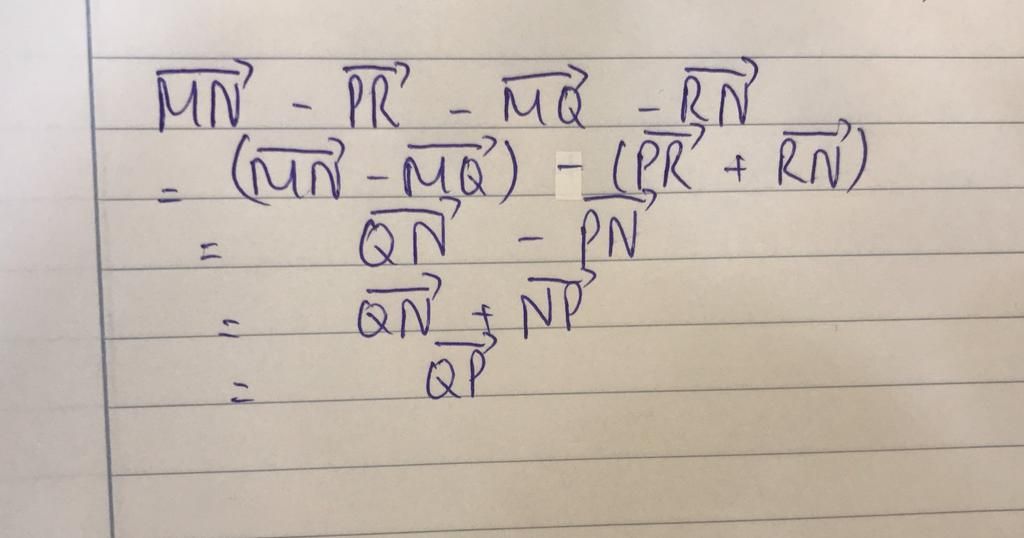 $\overrightarrow{MN} - \overrightarrow{PR} - \overrightarrow{MQ} - \overrightarrow{RN}$
$= (\overrightarrow{MN} - \overrightarrow{MQ}) - (\overrightarrow{PR} + \overrightarrow{RN})$
$= \overrightarrow{QN} - \overrightarrow{PN}$
$= \overrightarrow{QN} + \overrightarrow{NP}$
$= \overrightarrow{QP}$